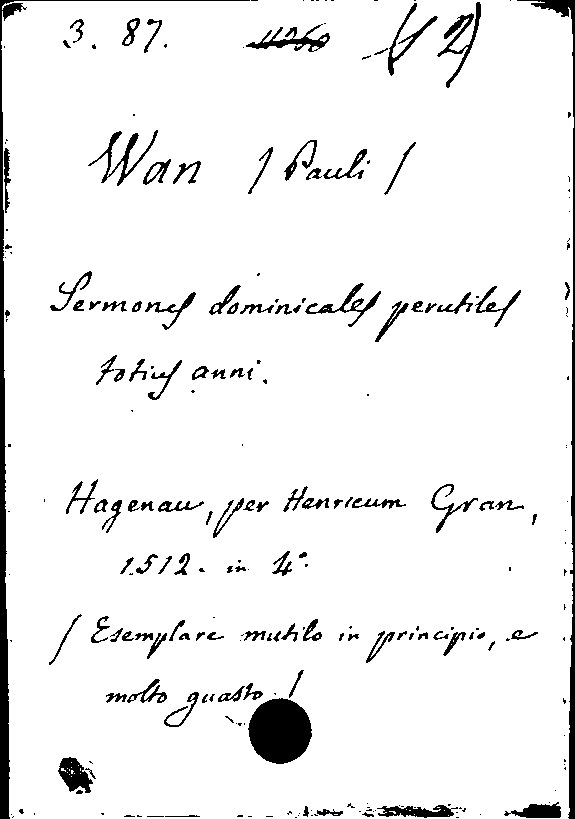 3. 87. (12)
Wan / Pauli /
Sermones dominicales perutiles
totius anni.
Hagenau, per Henricum Gran,
1512. in 4°.
/ Esemplare mutilo in principio, e
molto guasto /